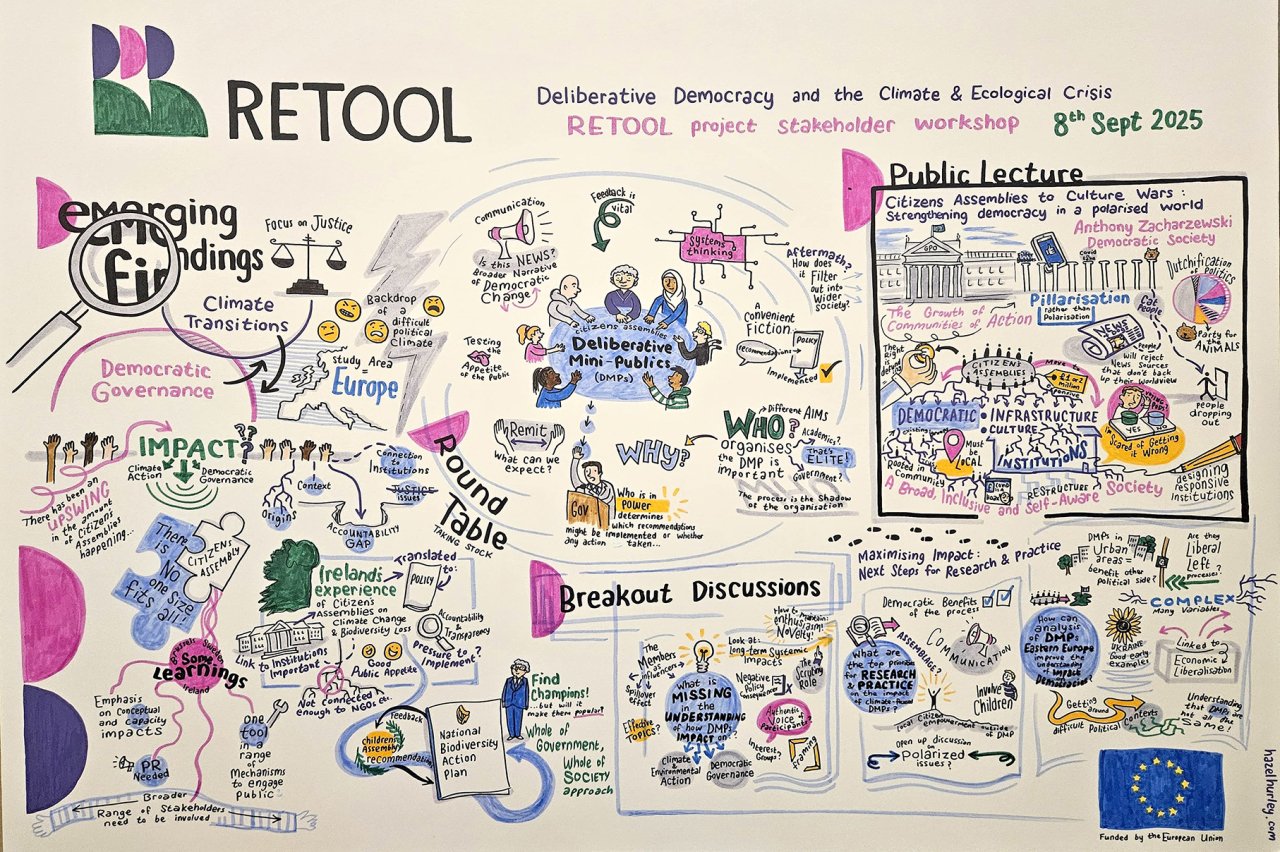 RETOOL
Deliberative Democracy and the Climate & Ecological Crisis
RETOOL project stakeholder workshop 8th Sept 2025
emerging
findings
Focus on Justice
Climate
Transitions
Democratic
Governance
Backdrop
of a
difficult
political
Climate
Study Area
=
Europe
IMPACT??
Climate
Action
Democratic
Governance
There has been an
UPSWING
in the amount
of Citizens
Assemblies
happening...
Context
Origins
ACCOUNTABILITY
GAP
Connection
to
Institutions
JUSTICE
issues
There
is
No
one size
fits all!
CITIZENS
ASSEMBLY
Some
Learnings
Ireland
Emphasis
on Conceptual
and capacity
impacts
PR
Needed
one
tool
in a
range
of
Mechanisms
to engage
public
Broader
Range of Stakeholders
need to be involved
Ireland's
experience
of Citizen's
Assemblies on
Climate Change
& Biodiversity Loss
Translated
to:
POLICY
Link to Institutions
Important
Good
Public Appetite
Accountability
& Transparency
pressure to
Implement?
Not connected
enough to NGOs etc.
feedback
children's
Assembly
recommendations
National
Biodiversity
Action
Plan
Find
Champions!
...but will it
make them popular?
Whole of
Government,
Whole of
SOCIETY
approach
Round
Table
TAKING STOCK
Communication
Is this NEWS?
Broader Narrative
of Democratic
Change
Feedback is
vital
systems
thinking
Aftermath?
How does
it Filter
out into
Wider
Society?
Testing
the
Appetite
of the Public
citizens assemblies
Deliberative
Mini-Publics
(DMPs)
A
Convenient
Fiction
recommendations
POLICY
Implemented
Remit
What can we
expect?
Gov
WHY?
Who is in
Power
determines
which recommendations
might be implemented or whether
any action taken...
WHO?
organises
the DMP is
important
Different AIMS
Academics?
That's
ELITE!
Government?
The process is the Shadow
of the organisation
Public Lecture
Citizens Assemblies to Culture Wars:
Strengthening democracy in a polarised world
Anthony Zacharzewski
Democratic Society
GPO
The Growth of
Communities of Action
Pillarisation
rather than
Polarisation
Cat
People
Dutchification
of Politics
Party for
the
ANIMALS
NEWS
People
will reject
News Sources
that don't back
up their worldview
people
dropping
out
CITIZENS
ASSEMBLIES
DEMOCRATIC
INFRASTRUCTURE
CULTURE
INSTITUTIONS
YES
NO
Scared of Getting
it Wrong
Must
be
LOCAL
Rooted in
Community
RESTRUCTURE
A Broad, Inclusive and Self-Aware Society
designing
responsive
Institutions
Breakout Discussions
Maximising Impact:
Next Steps for Research & Practice
The
Members
as
influencers
Spillover
effect
Effective
TOPICS?
What is
MISSING
in the
UNDERSTANDING
of how DMPs
IMPACT on...?
Climate &
Environmental
Action
Democratic
Governance
How to Maintain:
enthusiasm
Novelty!
Look at:
long-term Systemic
Impacts
Negative
Policy
consequence
The
Scripting
Role
Authentic
Voice of
Participants?
Interest
Groups?
framing
Democratic Benefits
of the process
What are
the top priorities
for RESEARCH
& PRACTICE
on the impact
of climate-focused
DMPs?
ASSEMBLAGE?
COMMUNICATION
Involve
Children
local Citizen
empowerment outside
of DMP
open up discussion
on
Polarized
issues?
DMPs in
Urban
areas =
benefit other
political side?
Are they
Liberal
Left?
processes?
COMPLEX
Many Variables
How can
analysis
of DMPs:
Eastern Europe
improve the
understanding
of impact
Democratisation?
UKRAINE
Good early
example!
Linked to
Economic
Liberalisation
Getting
around
difficult Political
contexts
Understanding
that DMPs are
not all the
Same!
Funded by the European Union
hazelhurley.com